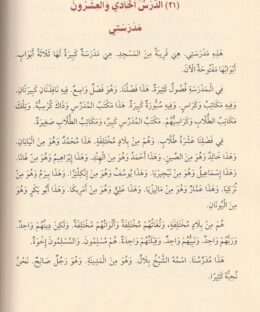 (٢١) الدَّرْسُ الْحَادِي وَالْعِشْرُونَ
مَدْرَسَتِي
هَذِهِ مَدْرَسَتِي. هِيَ قَرِيبَةٌ مِنَ الْمَسْجِدِ. هِيَ مَدْرَسَةٌ كَبِيرَةٌ لَهَا ثَلَاثَةُ أَبْوَابٍ.
أَبْوَابُهَا مَفْتُوحَةٌ الْآنَ.
فِي الْمَدْرَسَةِ فُصُولٌ كَثِيرَةٌ. هَذَا فَصْلُنَا. وَهُوَ فَصْلٌ وَاسِعٌ. فِيهِ نَافِذَتَانِ كَبِيرَتَانِ.
وَفِيهِ مَكَاتِبُ وَكَرَاسِيُّ. وَفِيهِ سَبُّورَةٌ كَبِيرَةٌ. هَذَا مَكْتَبُ الْمُدَرِّسِ وَذَاكَ كُرْسِيُّهُ. وَتِلْكَ
مَكَاتِبُ الطُّلَّابِ وَكَرَاسِيُّهُمْ. مَكْتَبُ الْمُدَرِّسِ كَبِيرٌ وَمَكَاتِبُ الطُّلَّابِ صَغِيرَةٌ.
فِي فَصْلِنَا عَشَرَةُ طُلَّابٍ. وَهُمْ مِنْ بِلَادٍ مُخْتَلِفَةٍ. هَذَا مُحَمَّدٌ وَهُوَ مِنَ الْيَابَانِ.
وَهَذَا خَالِدٌ وَهُوَ مِنَ الصِّينِ. وَهَذَا أَحْمَدُ وَهُوَ مِنَ الْهِنْدِ. وَهَذَا إِبْرَاهِيمُ وَهُوَ مِنْ غَانَا.
وَهَذَا إِسْمَاعِيلُ وَهُوَ مِنْ نَيْجِيرِيَا. وَهَذَا يُوسُفُ وَهُوَ مِنْ إِنْكِلْتَرَا. وَهَذَا بَيْرَمُ وَهُوَ مِنْ
تُرْكِيَا. وَهَذَا عَمَّارٌ وَهُوَ مِنْ مَالِيزِيَا. وَهَذَا عَلِيٌّ وَهُوَ مِنْ أَمْرِيكَا. وَهَذَا أَبُو بَكْرٍ وَهُوَ
مِنَ الْيُونَانِ.
هُمْ مِنْ بِلَادٍ مُخْتَلِفَةٍ، وَلُغَاتُهُمْ مُخْتَلِفَةٌ وَأَلْوَانُهُمْ مُخْتَلِفَةٌ. وَلَكِنْ دِينُهُمْ وَاحِدٌ.
وَرَبُّهُمْ وَاحِدٌ. وَنَبِيُّهُمْ وَاحِدٌ. وَقِبْلَتُهُمْ وَاحِدَةٌ. هُمْ مُسْلِمُونَ. وَالْمُسْلِمُونَ إِخْوَةٌ.
هَذَا مُدَرِّسُنَا. اسْمُهُ الشَّيْخُ بِلَالٌ. وَهُوَ مِنَ الْمَدِينَةِ. وَهُوَ رَجُلٌ صَالِحٌ. نَحْنُ
نُحِبُّهُ كَثِيرًا.